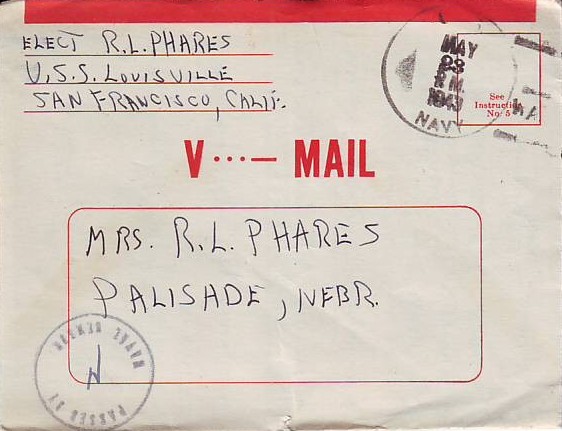 ELECT R.L. PHARES
U.S.S. LOUISVILLE
SAN FRANCISCO, CALIF.
MAY
P.M.
1943
NAVY
See
Instruction
No. 5
V ···— MAIL
MRS. R.L. PHARES
PALISADE, NEBR.
PASSED BY
NAVAL CENSOR